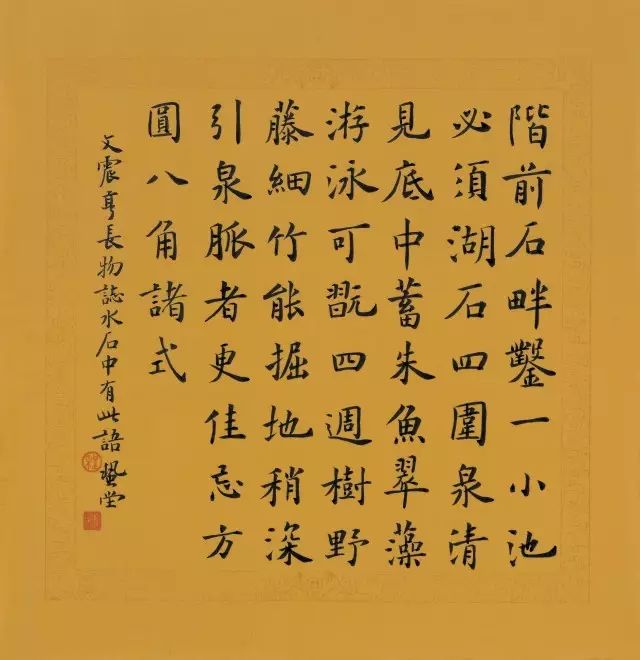 階前石畔鑿一小池
必須湖石四圍泉清
見底中蓄朱魚翠藻
游泳可翫四週樹野
藤細竹能掘地稍深
引泉脈者更佳忌方
圓八角諸式
文震亨長物誌水石中有此語堂